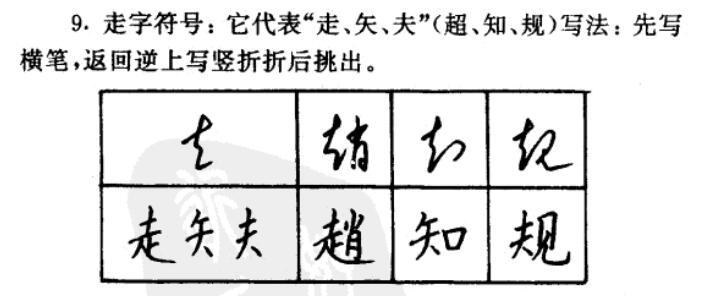 9. 走字符号：它代表“走、矢、夫”（超、知、规）写法：先写
横笔，返回逆上写竖折折后挑出。
走 趙 知 规
走矢夫 趙 知 规